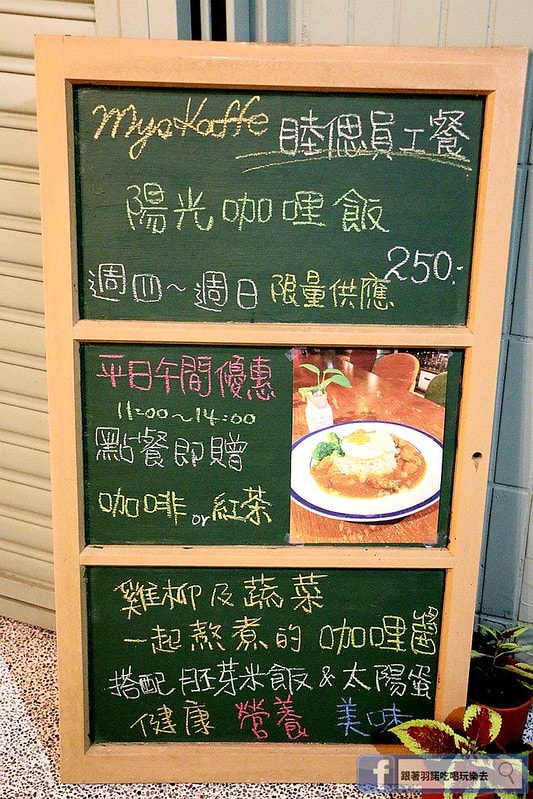 MyaKaffe 睦偲員工餐
陽光咖哩飯
250.-
週四～週日限量供應
平日午間優惠
11:00～14:00
點餐即贈
咖啡or紅茶
雞柳及蔬菜
一起熬煮的咖哩醬
搭配胚芽米飯&太陽蛋
健康 營養 美味
f 跟著羽諾吃喝玩樂去